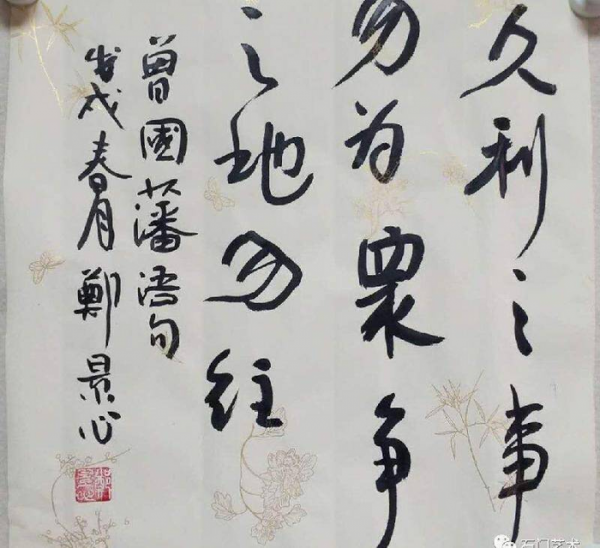 久利之事
勿为眾争
之地勿往
曾國藩语句
戊戌春月鄭景心